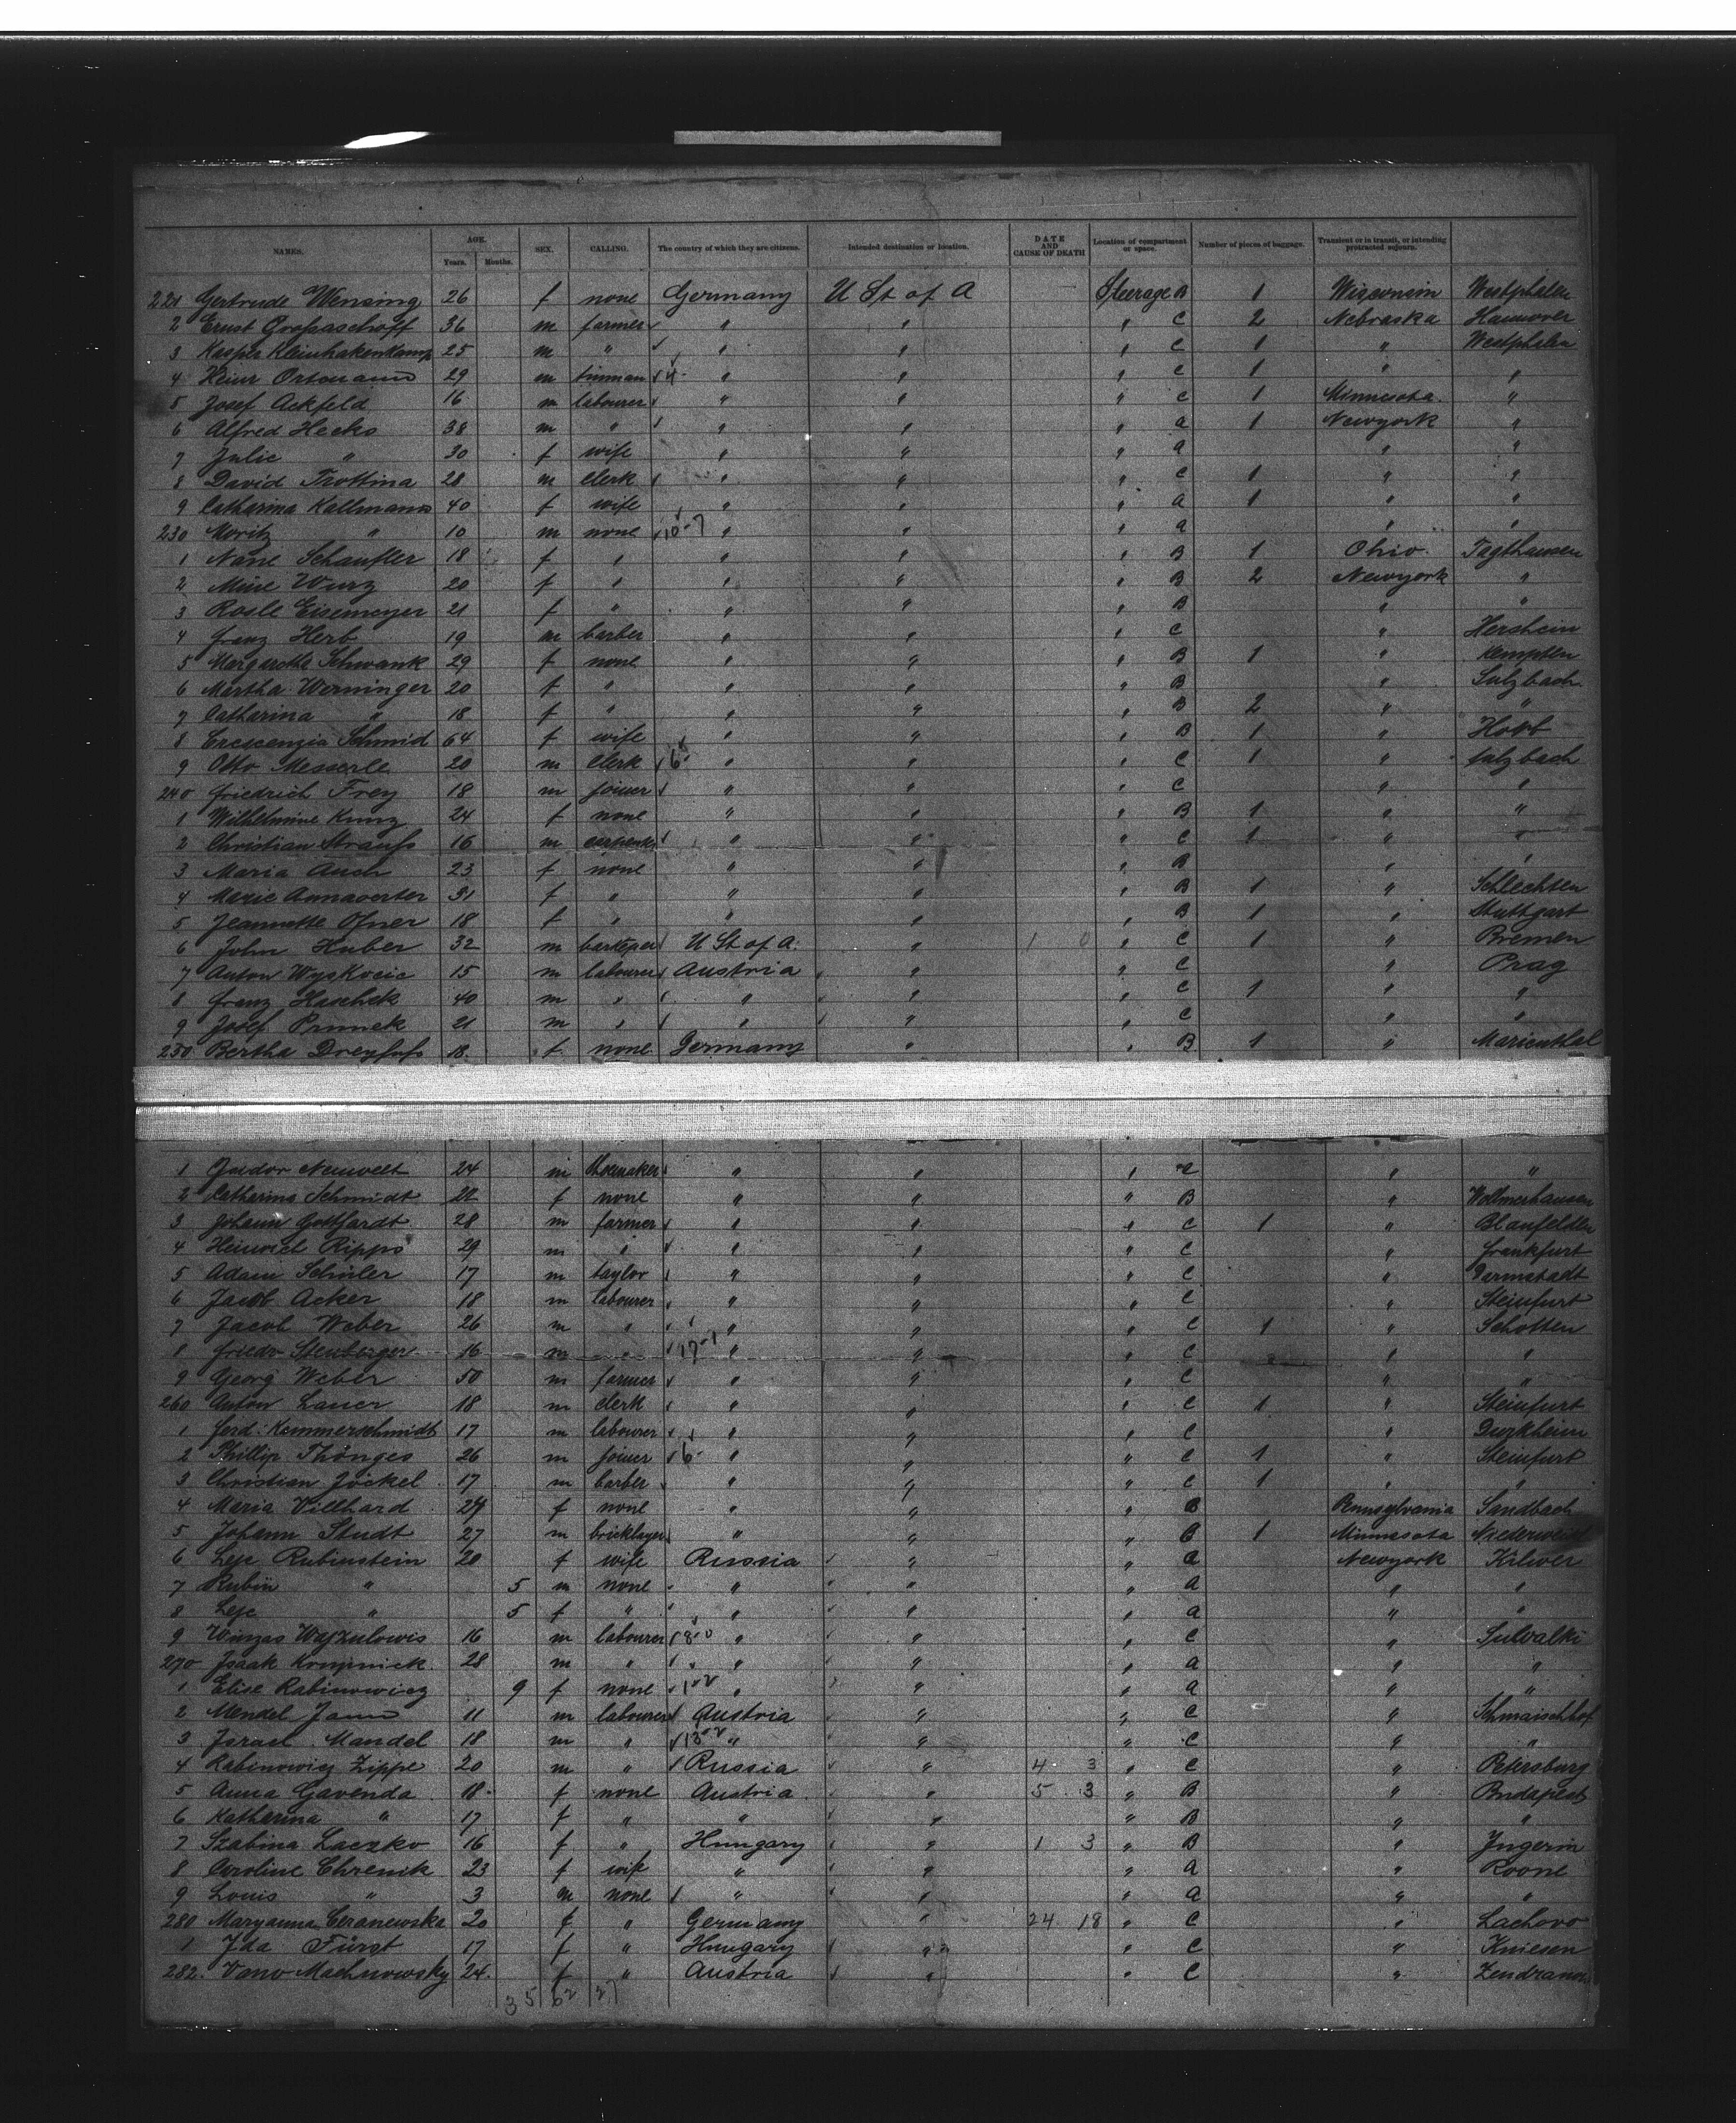 NAMES. AGE. Years. Months. SEX. CALLING. The country of which they are citizens. Intended destination or location. DATE AND CAUSE OF DEATH Location of compartment or space. Number of pieces of baggage. Transient or in transit, or intending protracted sojourn.
221 Gertrude Wensing 26 f none Germany U St of A Steerage B 1 Wisconsin Westphalen
2 Ernst Großaschoff 36 m farmer " " " C 2 Nebraska Hannover
3 Kasper Kleinhakenkamp 25 m " " " " C 1 " Westphalen
4 Heinr Ortmann 29 m tinman 4 " " " C 1 " "
5 Josef Ackfeld 16 m labourer " " " C 1 Minnesota "
6 Alfred Hecks 38 m " " " " a 1 Newyork "
7 Julie " 30 f wife " " " a " "
8 David Trottina 28 m clerk " " " C 1 " "
9 Catharina Kallmann 40 f wife " " " a 1 " "
230 Moritz " 10 m none 10-7 " " " a " "
1 Nane Schaufler 18 f " " " " B 1 Ohio Jagthausen
2 Mine Wurz 20 f " " " " B 2 Newyork "
3 Rosle Eisemeyer 21 f " " " " B " "
4 Franz Herb 19 m barber " " " C " Hershein
5 Margaretha Schwank 29 f none " " " B 1 " Kempten
6 Martha Werninger 20 f " " " " B " Sulzbach
7 Catharina " 18 f " " " " B 2 " "
8 Crescenzia Schmid 64 f wife " " " B 1 " Horb
9 Otto Messerle 20 m clerk 6 " " " C 1 " Sulzbach
240 Friedrich Frey 18 m joiner " " " C " "
1 Wilhelmine Kunz 24 f none " " " B 1 " "
2 Christian Strauß 16 m carpent. " " " C 1 " "
3 Maria Auch 23 f none " " " B " "
4 Marie Annaverter 31 f " " " " B 1 " Schlechten
5 Jeannette Ofner 18 f " " " " B 1 " Stuttgart
6 John Huber 32 m barkeper U St of A. " 1 0 " C 1 " Bremen
7 Anton Wyskocic 15 m labourer Austria " " C " Prag
8 Franz Haschek 40 m " " " " C 1 " "
9 Josef Prunek 21 m " " " " C " "
250 Bertha Dreyfuß 18 f none Germany " " B 1 " Marienthal
1 Isidor Neuwelt 24 m shoemaker " " " a " "
2 Catharina Schmidt 22 f none " " " B " Wollmerhausen
3 Johann Gottfardt 28 m farmer " " " C 1 " Blaufelden
4 Heinrich Ripps 29 m " " " " C " Frankfurt
5 Adam Schüler 17 m taylor " " " C " Darmstadt
6 Jacob Acker 18 m labourer " " " C " Steinfurt
7 Jacob Weber 26 m " " " " C 1 " Schotten
8 Friedr Steuberger 16 m " 17-1 " " " C " "
9 Georg Weber 50 m farmer " " " C " "
260 Anton Lauer 18 m clerk " " " C 1 " Steinfurt
1 Ferd. Kammerschmidt 17 m labourer " " " C " Durkheim
2 Phillip Thönges 26 m joiner 6 " " " C 1 " Steinfurt
3 Christian Jöckel 17 m barber " " " C 1 " "
4 Maria Villhard 24 f none " " " B Pennsylvania Sandbach
5 Johann Studt 27 m bricklayer " " " C 1 Minnesota
6 Leje Rubinstein 20 f wife Russia " " a Newyork Kilwer
7 Rubin " 5 m none " " " a " "
8 Leje " 5 f " " " " a " "
9 Winzas Wajzulowis 16 m labourer 8-0 " " " C " Sulvalki
270 Isaak Krupnick 28 m " " " " a " "
1 Elise Rabinowicz 9 f none 1-2 " " " a " "
2 Mendel Jann 11 m labourer Austria " " C " Schmaischhof
3 Israel Mandel 18 m " 13-2 " " " C " "
4 Rabinowicz Zippe 20 m " Russia " 4 3 " C " Petersburg
5 Anna Gavenda 18 f none Austria " 5 3 " B " Budapest
6 Katharina " 17 f " " " " B " "
7 Szabina Laczko 16 f " Hungary " 1 3 " B " Ingerin
8 Caroline Chrenik 23 f wife " " " a " Roone
9 Louis " 3 m none " " " a " "
280 Maryanna Ceranewska 20 f " Germany " 24 18 " C " Lachovo
1 Ida Fürst 17 f " Hungary " " C " Kniesen
282. Vano Machnowsky 24. f " Austria " " C "
35 62 27